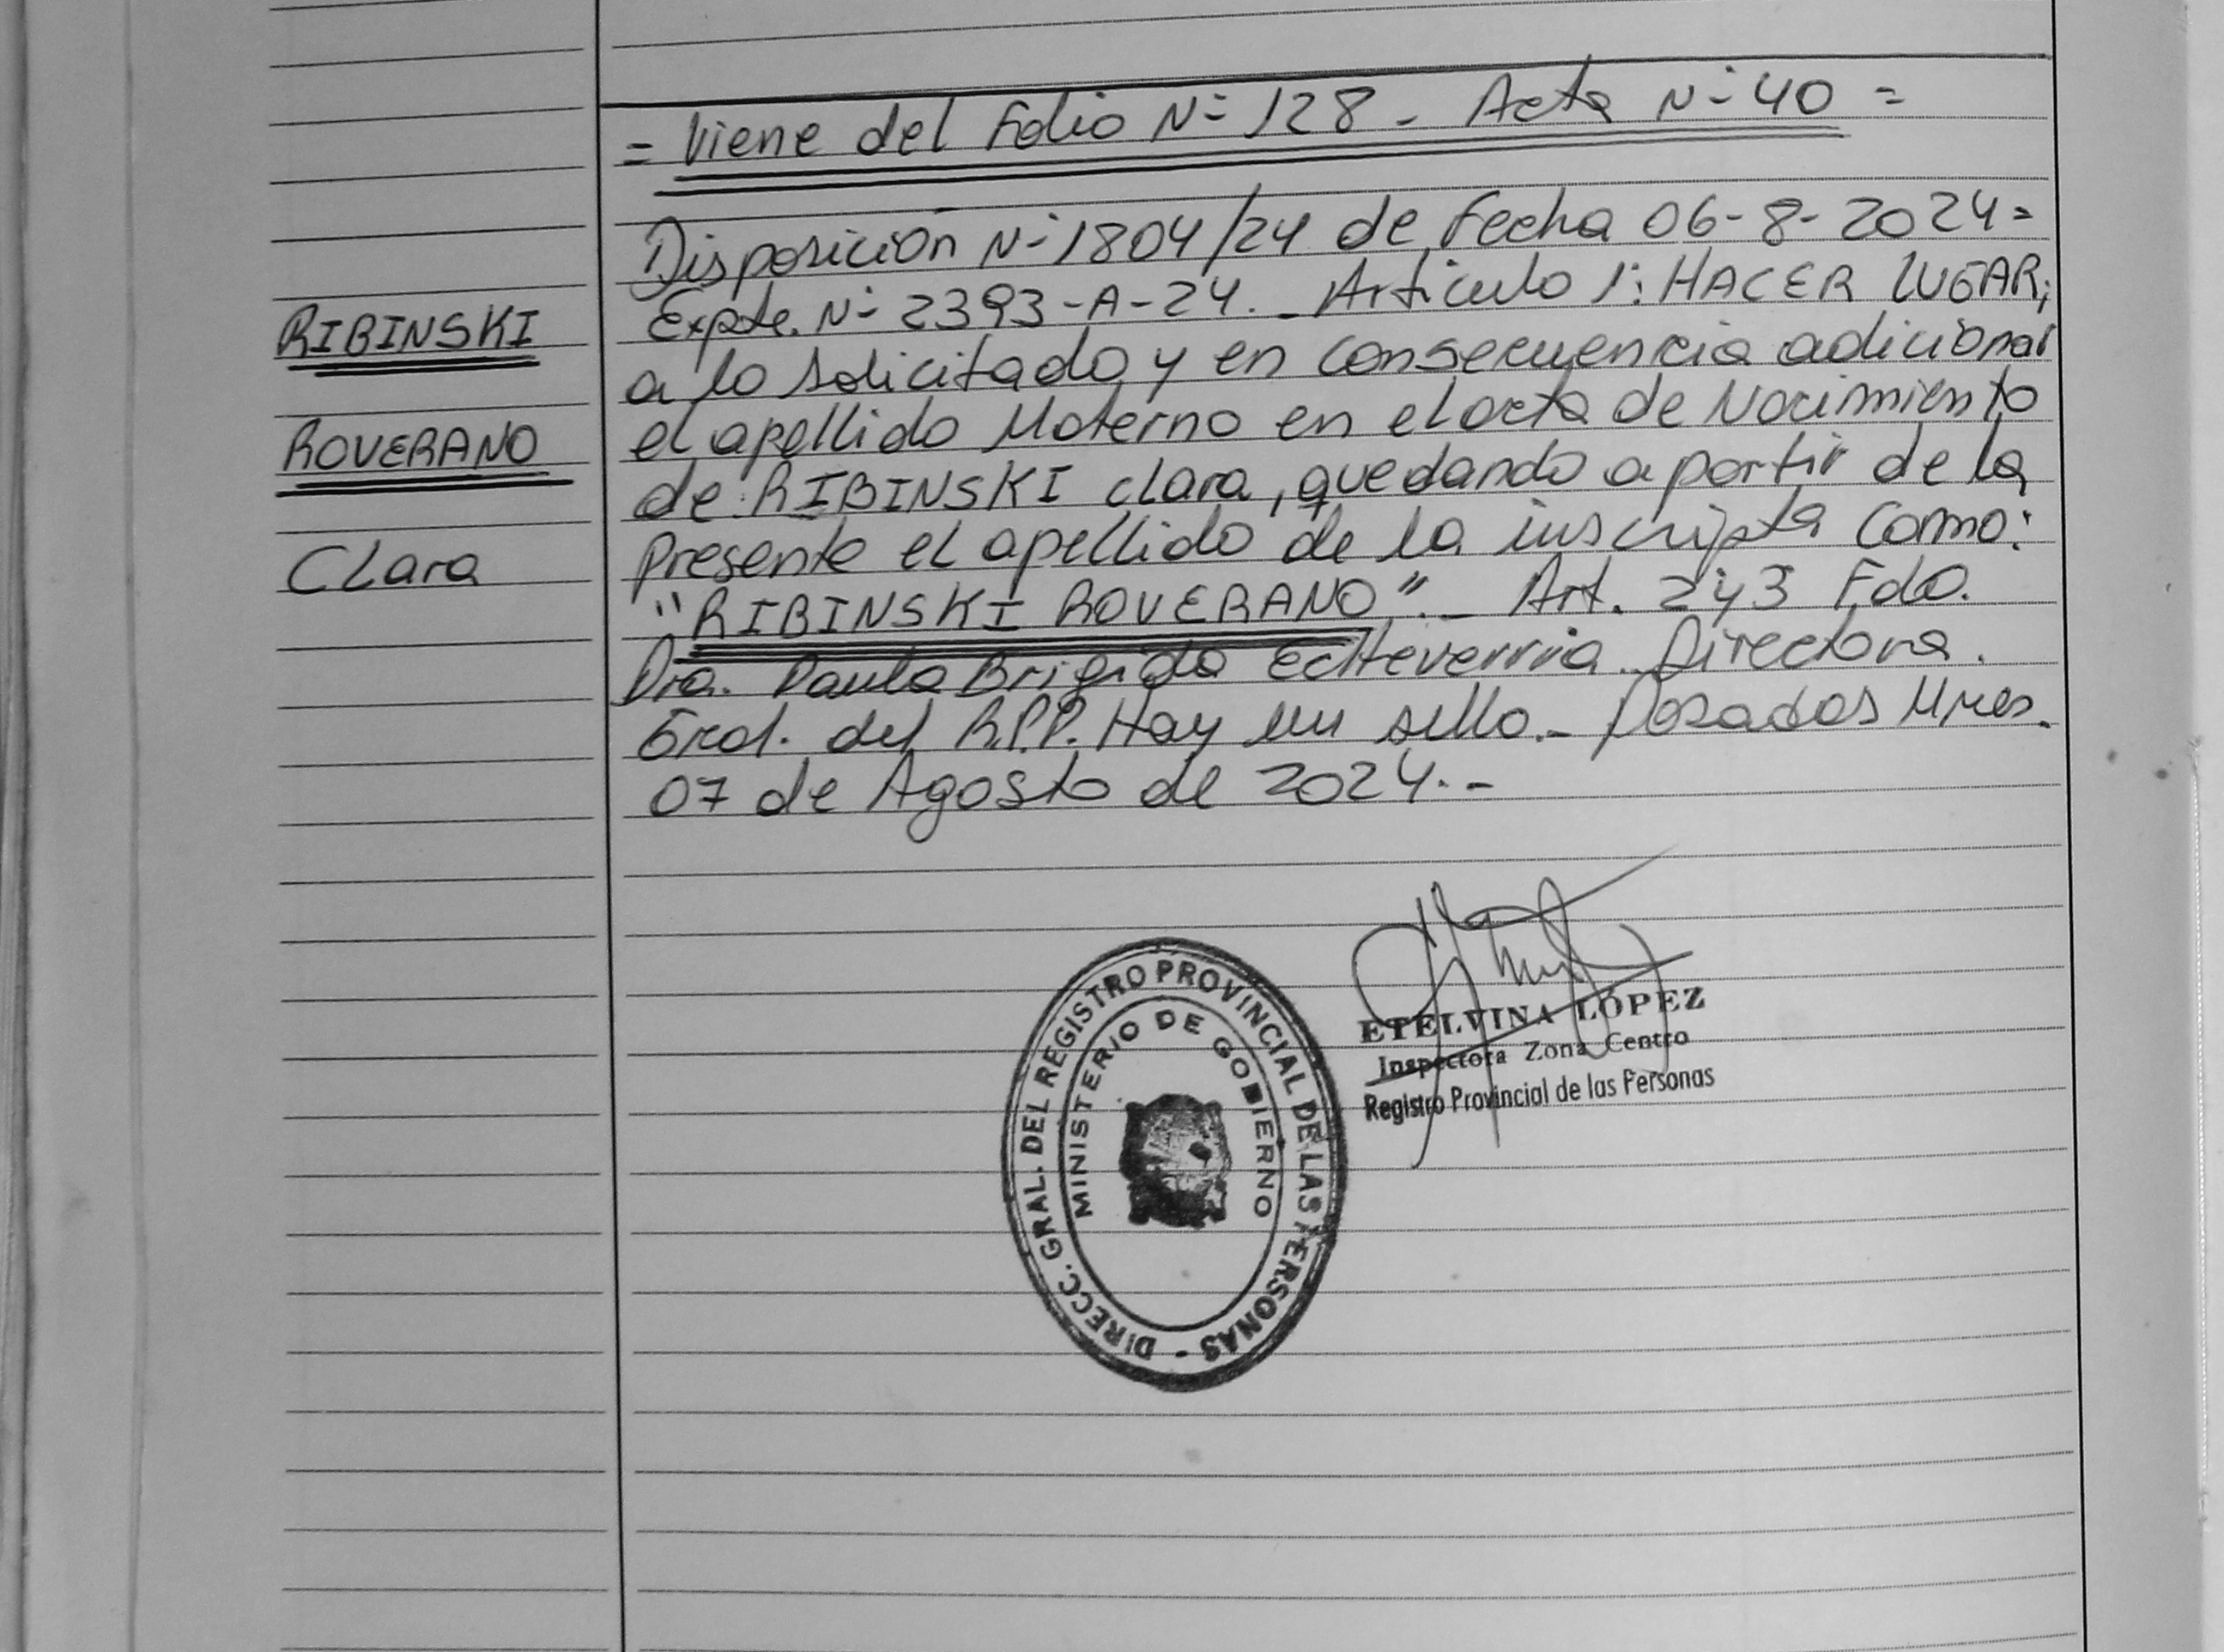 = Viene del Folio Nº 128 - Acta Nº 40 =
Disposición Nº 1804/24 de fecha 06-8-2024=
Expte. Nº 2393-A-24.- Artículo 1º: HACER LUGAR;
a lo solicitado y en consecuencia adicionar
el apellido Materno en el acta de Nacimiento
de: RIBINSKI Clara, quedando a partir de la
presente el apellido de la inscripta Como:
"RIBINSKI ROVERANO".- Art. 2 y 3 Fdo.
Dra. Paula Brigida Echeverria. Directora.
Gral. del R.P.P. Hay un sello.- Posadas Mnes.
07 de Agosto de 2024.-
RIBINSKI
ROVERANO
Clara
DIRECC. GRAL. DEL REGISTRO PROVINCIAL DE LAS PERSONAS -
MINISTERIO DE GOBIERNO
ETELVINA LÓPEZ
Inspectora Zona Centro
Registro Provincial de las Personas